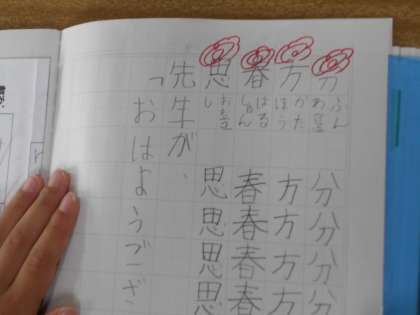 分 ぶん 分分分分
方 かた ほう 方方方方
春 はる しゅん 春春春春
思 し 思思思思
先生が、
「おはようござ